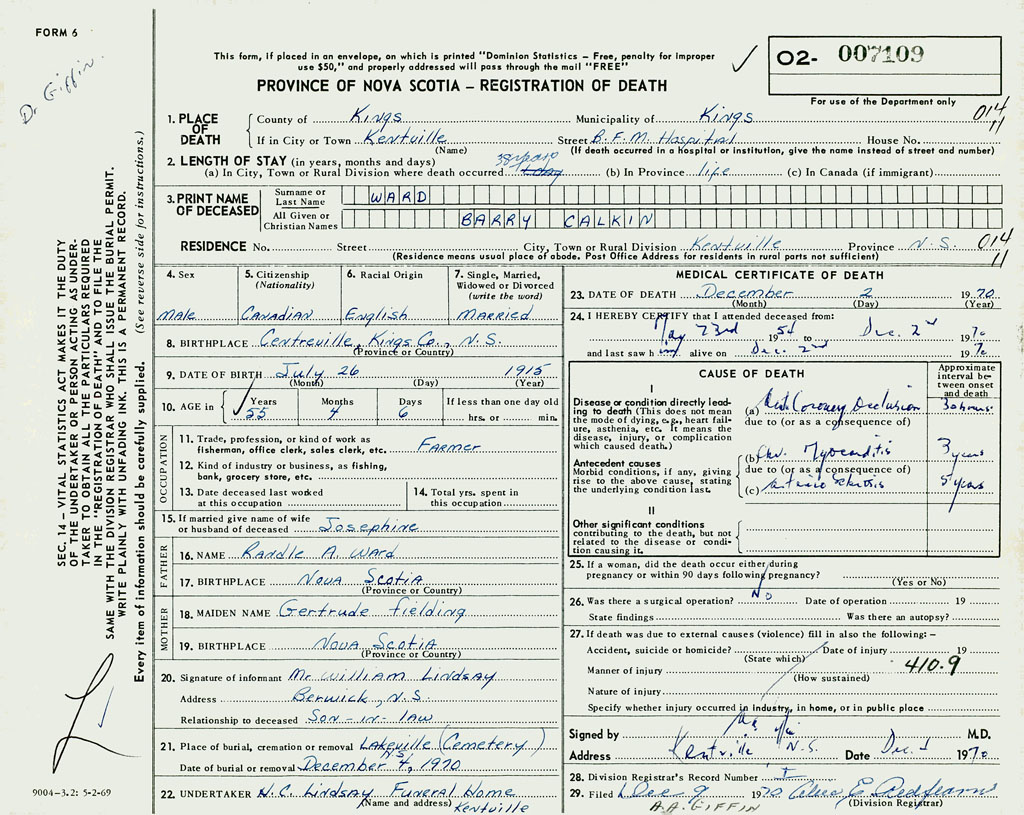 FORM 6
Dr. Giffin.
This form, if placed in an envelope, on which is printed "Dominion Statistics – Free, penalty for improper
use $50," and properly addressed will pass through the mail "FREE"
02- 007109
For use of the Department only
PROVINCE OF NOVA SCOTIA – REGISTRATION OF DEATH
014
11
1. PLACE OF DEATH
County of Kings Municipality of Kings
If in City or Town Kentville Street B.F.M. Hospital House No.
(Name) (If death occurred in a hospital or institution, give the name instead of street and number)
2. LENGTH OF STAY (in years, months and days)
(a) In City, Town or Rural Division where death occurred 38 years (b) In Province life (c) In Canada (if immigrant)
3. PRINT NAME OF DECEASED
Surname or Last Name WARD
All Given or Christian Names BARRY CALKIN
RESIDENCE No. Street City, Town or Rural Division Kentville Province N.S. 014
11
(Residence means usual place of abode. Post Office Address for residents in rural parts not sufficient)
4. Sex
Male
5. Citizenship
(Nationality)
Canadian
6. Racial Origin
English
7. Single, Married,
Widowed or Divorced
(write the word)
Married
8. BIRTHPLACE Centreville, Kings Co., N.S.
(Province or Country)
9. DATE OF BIRTH July 26 1915
(Month) (Day) (Year)
10. AGE in
Years Months Days If less than one day old
55 4 6 hrs. or min.
OCCUPATION
11. Trade, profession, or kind of work as
fisherman, office clerk, sales clerk, etc. Farmer
12. Kind of industry or business, as fishing,
bank, grocery store, etc.
13. Date deceased last worked
at this occupation
14. Total yrs. spent in
this occupation
15. If married give name of wife
or husband of deceased Josephine
FATHER
16. NAME Randle A. Ward
17. BIRTHPLACE Nova Scotia
(Province or Country)
MOTHER
18. MAIDEN NAME Gertrude Fielding
19. BIRTHPLACE Nova Scotia
(Province or Country)
20. Signature of informant Mr. William Lindsay
Address Berwick, N.S.
Relationship to deceased Son-in-law
21. Place of burial, cremation or removal Lakeville (Cemetery)
N.S.
Date of burial or removal December 4, 1970
22. UNDERTAKER H.C. Lindsay Funeral Home
(Name and address) Kentville
MEDICAL CERTIFICATE OF DEATH
23. DATE OF DEATH December 2 1970
(Month) (Day) (Year)
24. I HEREBY CERTIFY that I attended deceased from:
May 23rd 1954 to Dec. 2nd 1970
and last saw him alive on Dec. 2nd 1970
CAUSE OF DEATH
Approximate
interval be-
tween onset
and death
I
Disease or condition directly lead-
ing to death (This does not mean
the mode of dying, e.g., heart fail-
ure, asthenia, etc. It means the
disease, injury, or complication
which caused death.)
(a) Coronary Occlusion
due to (or as a consequence of)
Antecedent causes
Morbid conditions, if any, giving
rise to the above cause, stating
the underlying condition last.
(b) Chr. Myocarditis 3 years
due to (or as a consequence of)
(c) Arterio Sclerosis 5 years
II
Other significant conditions
contributing to the death, but not
related to the disease or condi-
tion causing it.
25. If a woman, did the death occur either during
pregnancy or within 90 days following pregnancy?
(Yes or No)
26. Was there a surgical operation? No Date of operation 19
State findings Was there an autopsy?
27. If death was due to external causes (violence) fill in also the following: –
Accident, suicide or homicide? Date of injury 19
(State which)
Manner of injury 410.9
(How sustained)
Nature of injury
Specify whether injury occurred in industry, in home, or in public place
Signed by M.D.
Address Kentville N.S. Date Dec. 1970
28. Division Registrar's Record Number
29. Filed Dec 9 1970
(Division Registrar)
A.A. GIFFIN
SEC. 14 – VITAL STATISTICS ACT MAKES IT THE DUTY
OF THE UNDERTAKER OR PERSON ACTING AS UNDER-
TAKER TO OBTAIN ALL THE PARTICULARS REQUIRED
IN THE "REGISTRATION OF DEATH" AND TO FILE THE
SAME WITH THE DIVISION REGISTRAR WHO SHALL ISSUE THE BURIAL PERMIT.
WRITE PLAINLY WITH UNFADING INK. THIS IS A PERMANENT RECORD.
Every item of information should be carefully supplied. (See reverse side for instructions.)
9004-3.2: 5-2-69